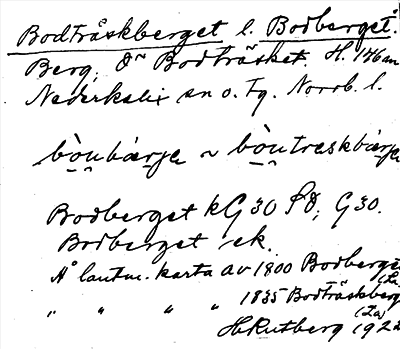 Bodträskberget l. Bodberget.
Berg, Bodträsket. H. 146 m
Nederkalix sn o. Tg. Norrb. l.
bòubærje ~ bòutræskbærje
Bodberget kG 30 G 30.
Bodberget ek.
Å lantm. karta av 1800 Bodberget
" " " " 1835 Bodträskberg
H. Rutberg 1922